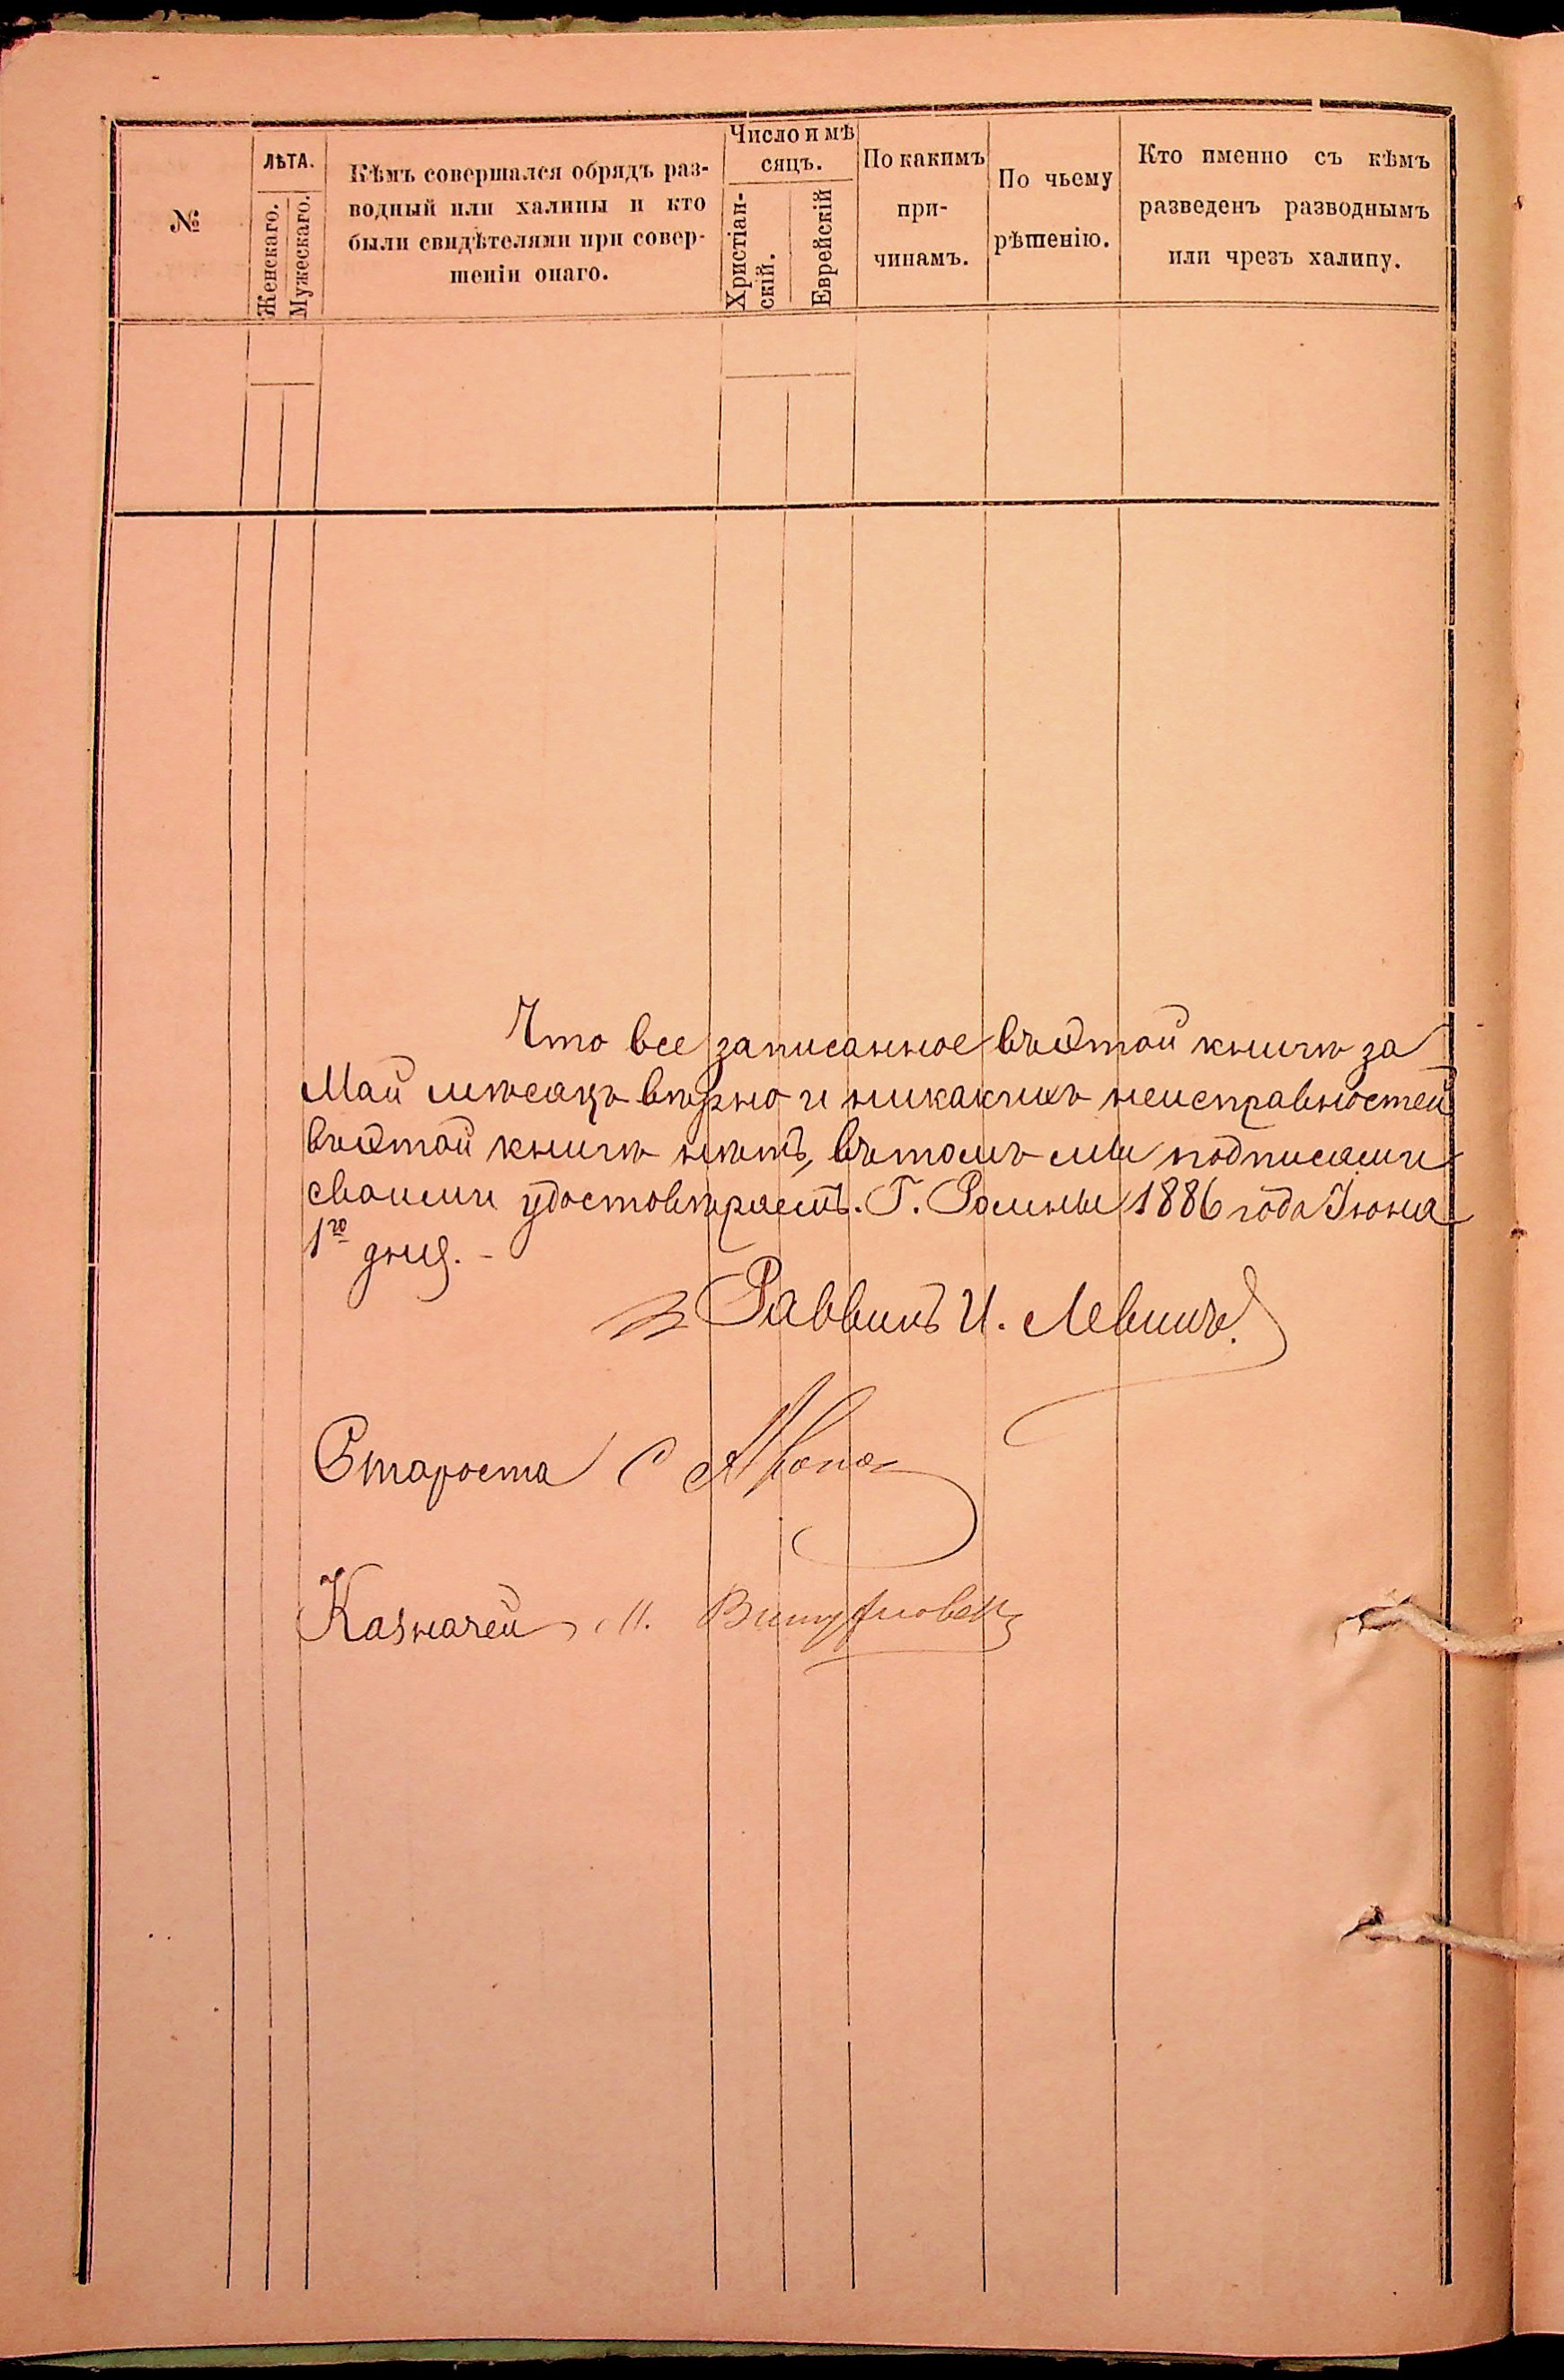 №
ЛѢТА.
Женскаго.
Мужескаго.
Кѣмъ совершался обрядъ раз-
водный или халицы и кто
были свидѣтелями при совер-
шеніи онаго.
Число и мѣ
сяцъ.
Христіан-
скій.
Еврейскій
По какимъ
при-
чинамъ.
По чьему
рѣшенію.
Кто именно съ кѣмъ
разведенъ разводнымъ
или чрезъ халицу.
Что все записанное въ этой книгѣ за
Май мѣсяцъ вѣрно и никакихъ неисправностей
въ этой книгѣ нѣтъ, въ томъ мы подписами
своими удостовѣраемъ. Г. Ромны 1886 года Іюня
1го дня. -
Раввинъ И. Левинъ.
Староста С
Казначей М.